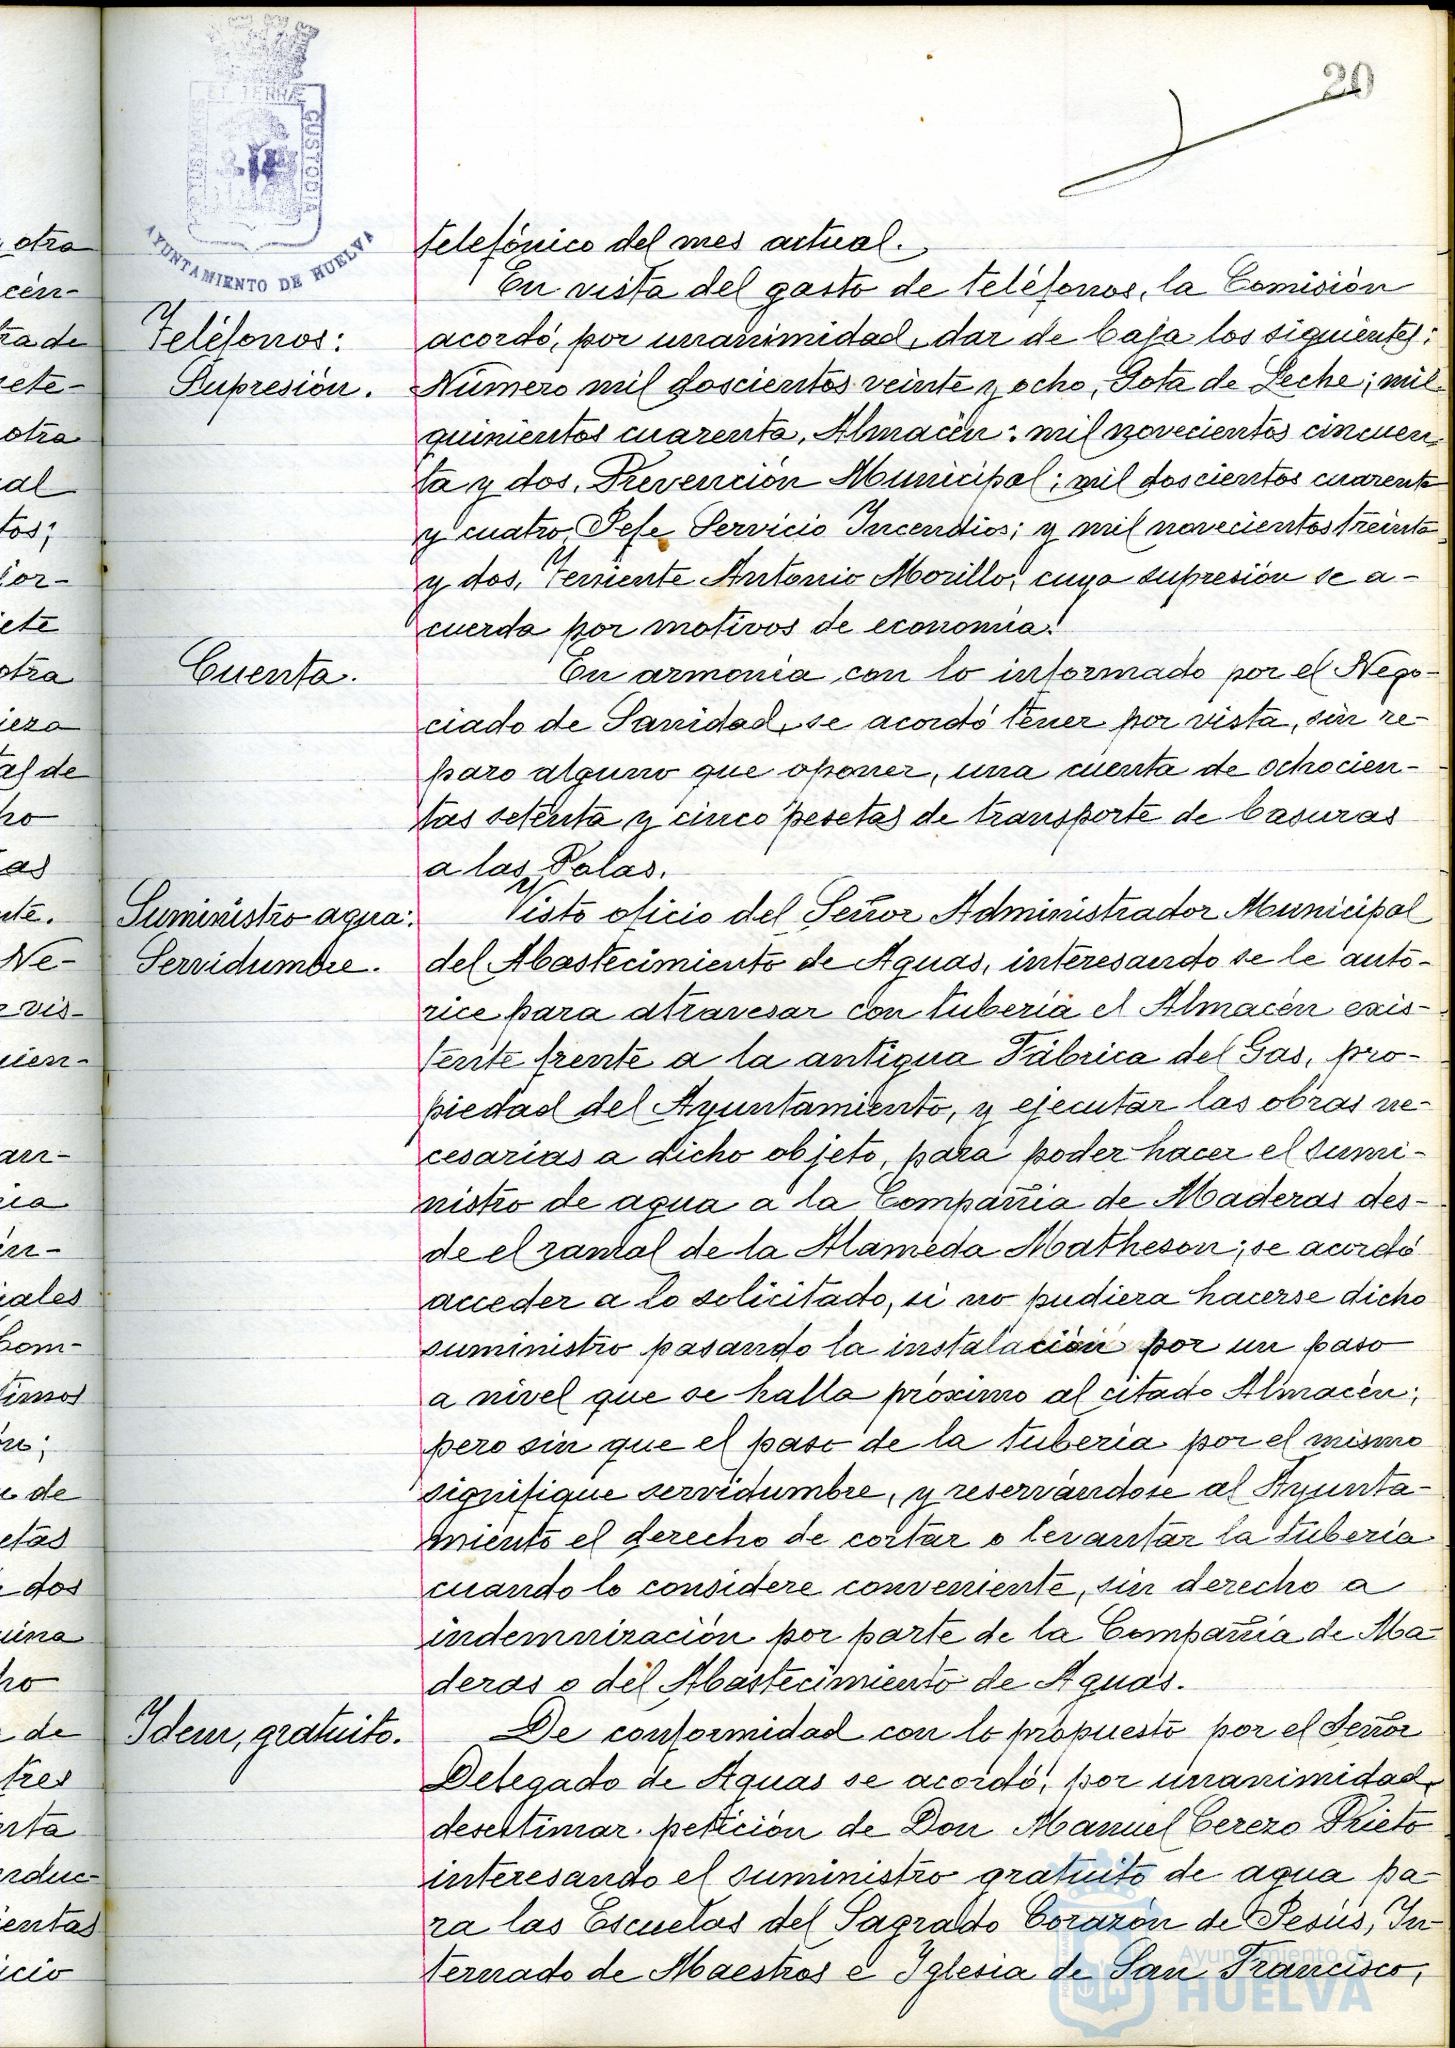 20
ET TERRÆ CUSTODIA
AYUNTAMIENTO DE HUELVA
telefónico del mes actual.
Teléfonos:
Supresión.
En vista del gasto de teléfonos, la Comisión
acordó, por unanimidad, dar de baja los siguientes:
Número mil doscientos veinte y ocho, Gota de Leche; mil
quinientos cuarenta, Almacén; mil novecientos cincuen
ta y dos, Prevención Municipal; mil doscientos cuarenta
y cuatro, Jefe Servicio Incendios; y mil novecientos treinta
y dos, Teniente Antonio Morillo; cuya supresión se a-
cuerda por motivos de economía.
Cuenta.
En armonía con lo informado por el Nego-
ciado de Sanidad, se acordó tener por vista, sin re-
paro alguno que oponer, una cuenta de ochocien-
tas setenta y cinco pesetas de transporte de basuras
a las Polas.
Suministro agua:
Servidumbre.
Visto oficio del Señor Administrador Municipal
del Abastecimiento de Aguas, interesando se le auto-
rice para atravesar con tubería el Almacén exis-
tente frente a la antigua Fábrica del Gas, pro-
piedad del Ayuntamiento, y ejecutar las obras ne-
cesarias a dicho objeto, para poder hacer el sumi-
nistro de agua a la Compañía de Maderas des-
de el ramal de la Alameda Matheson; se acordó
acceder a lo solicitado, si no pudiera hacerse dicho
suministro pasando la instalación por un paso
a nivel que se halla próximo al citado Almacén;
pero sin que el paso de la tubería por el mismo
signifique servidumbre, y reservándose al Ayunta-
miento el derecho de cortar o levantar la tubería
cuando lo considere conveniente, sin derecho a
indemnización por parte de la Compañía de Ma-
deras o del Abastecimiento de Aguas.
Idem, gratuito.
De conformidad con lo propuesto por el Señor
Delegado de Aguas se acordó, por unanimidad,
desestimar petición de Don Manuel Cerezo Prieto
interesando el suministro gratuito de agua pa-
ra las Escuelas del Sagrado Corazón de Jesús, In-
ternado de Maestros e Iglesia de San Francisco,
Ayuntamiento de
HUELVA
otra
cén-
ra de
ete-
otra
al
tos;
or-
ete
otra
iera
al de
ho
as
nte.
Ne-
vis-
cien-
an-
ria
én-
iales
Com-
timos
de
etas
dos
uina
ho
de
tres
nta
oduc-
ientas
icio